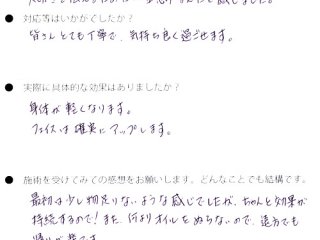 ● 対応等はいかがでしたか?
皆さんとても丁寧で、気持ち良く過ごせます。
● 実際に具体的な効果はありましたか?
身体が軽くなります。
フェイスは確実にアップします。
● 施術を受けてみての感想をお願いします。どんなことでも結構です。
最初は少し物足りないような感じでしたが、ちゃんと効果が
持続するので!また、何よりオイルをぬらないので、遠方でも